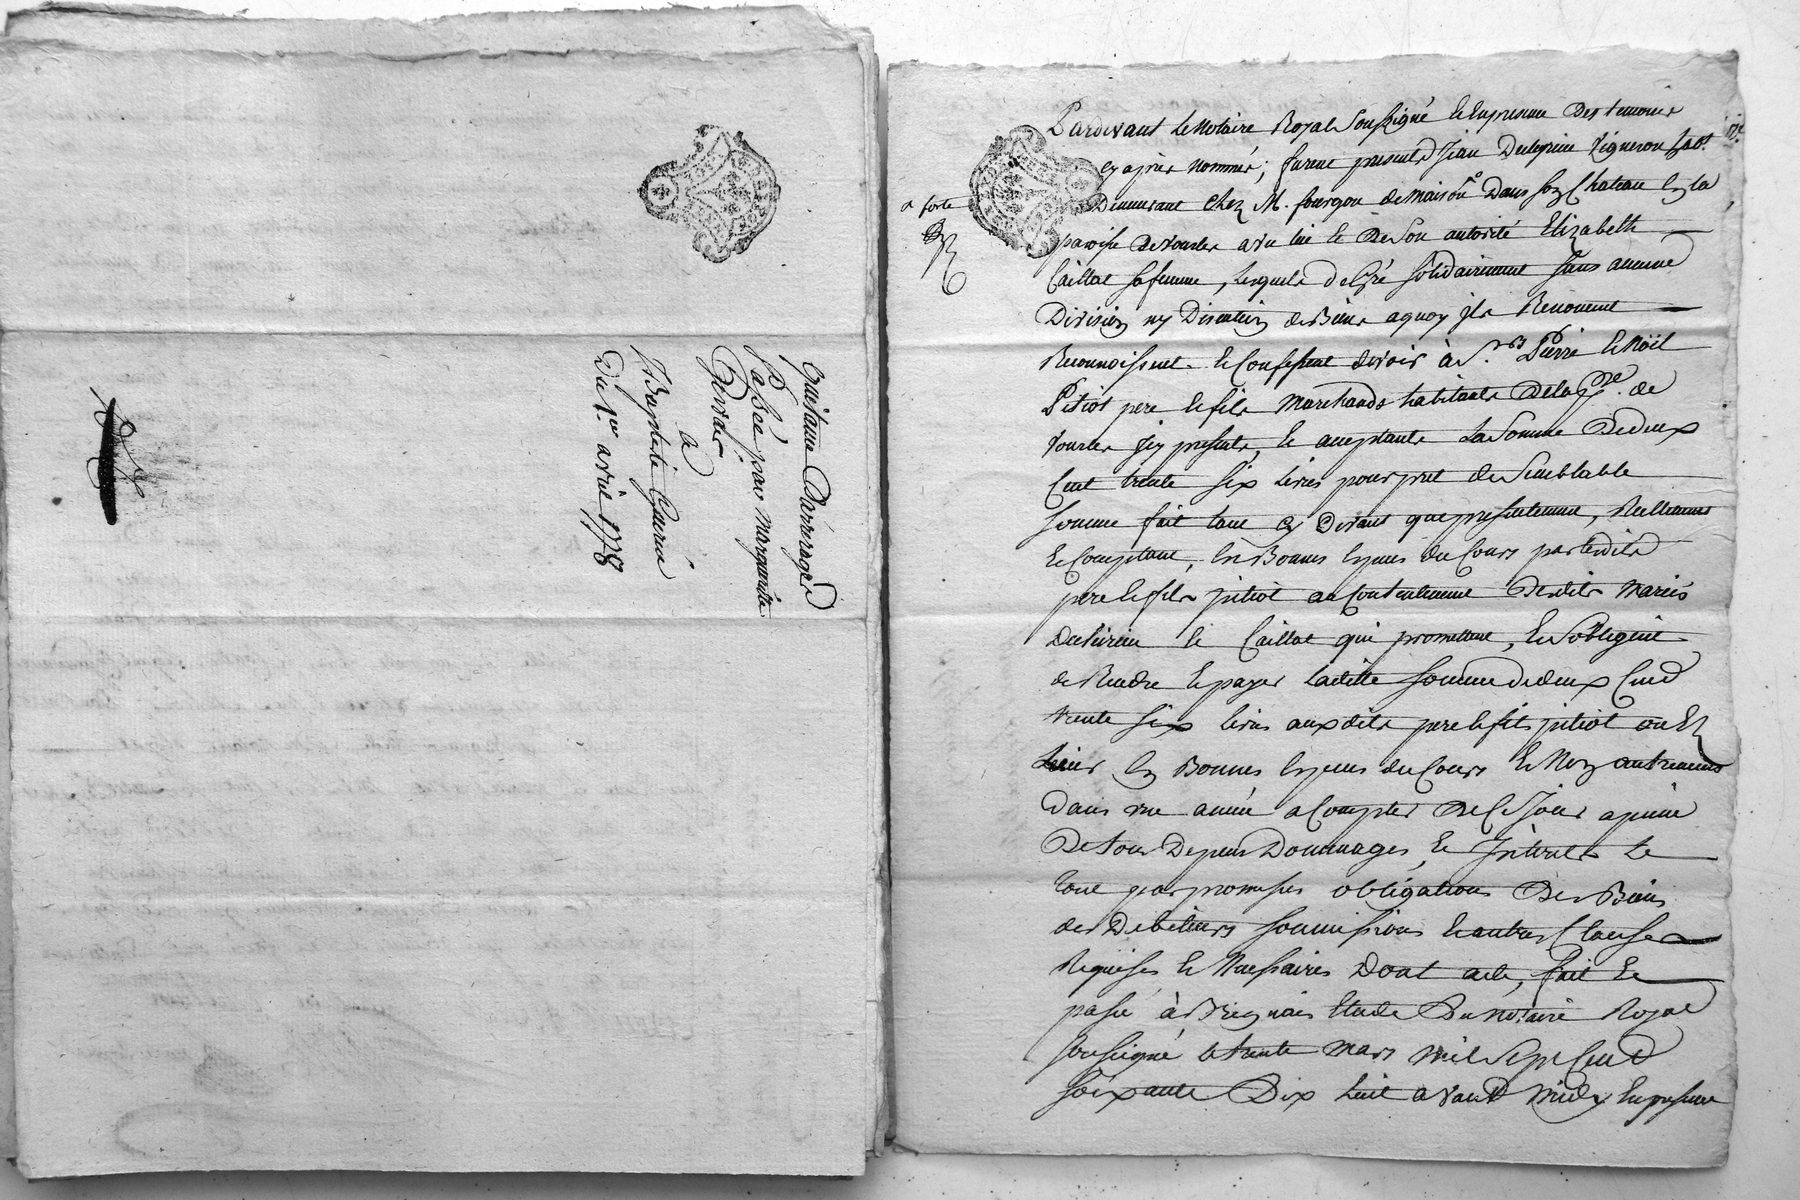 Quittance Darrerages
Passée par Margueritte
Gervais
a
J. Baptiste Guerin
Du 1er avril 1778
Pardevant Le Notaire Royal Soussigné & En presence Des temoins
cy après nommés; furent presents Jean Vigneron hab.t
Demeurant Chez M. fourgon de Maison Dans son Chateau En la
paroisse De vourles & De Son autorité Elizabeth
Caillot sa femme, Lesquels de Gré solidairement sans aucune
Division ny Discution de Biens a quoy ils Renoncent
Reconnoissent & Confessent devoir à Srs Pierre & Noël
Pitiot pere & fils Marchands habitants De la Psse de
vourles icy presents, & acceptants La Somme De deux
Cent trente six Livres pour pret de Semblable
somme fait tant cy Devant que presentement, Reellement
& Comptant, En Bonnes Especes du Cours par lesdits
pere & fils pitiot au Contentement Desdits Mariés
& Caillot qui promettent, & S'obligent
de Rendre & payer Laditte somme de deux Cent
trente six Livres auxdits pere & fils pitiot ou Es
Leurs En Bonnes Especes du Cours & Non autrement
Dans une année a Compter De Ce Jour a peine
De tous Depens Dommages, & Interets Le
tout par promesses obligations Des Biens
des Debiteurs soumissions & autres Clauses
Requises & Necessaires Dont acte, fait &
passé à Brignais Etude Du Notaire Royal
soussigné le trente Mars Mil Sept Cent
soixante Dix huit avant Midy En presence